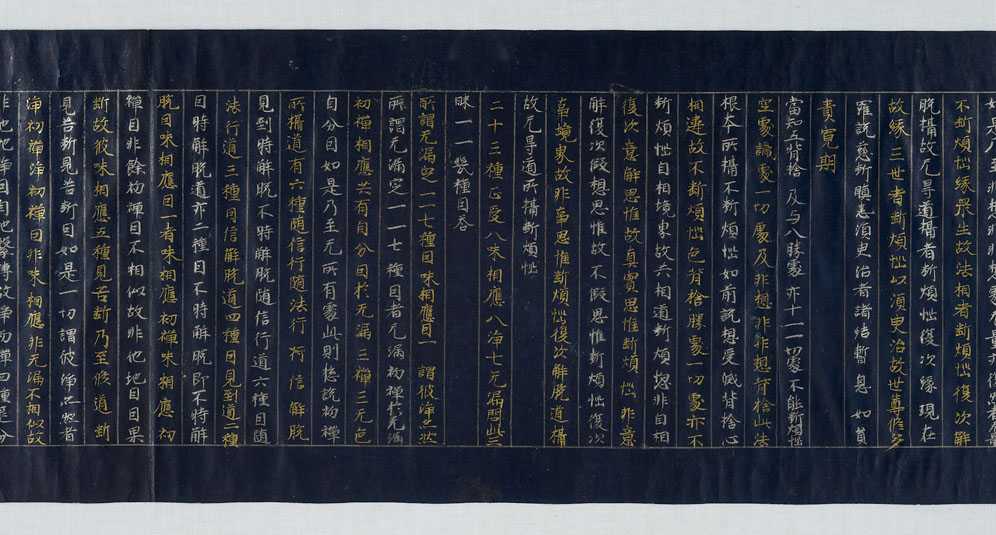 不斷煩惱緣眾生故法相者斷煩惱復次解
脫攝故无㝵道攝者斷煩惱復次緣現在
故緣三世者斷煩惱以湏臾治故世尊脩多
羅說慈斷瞋恚湏臾治者諸結暫息如貧
貴寬期
當知五背捨及与八勝處亦十一一切處不能斷煩惱
空處論處一切處及非想非非想背捨此法
根本所攝不斷煩惱如前說想受滅背捨心
相違故不斷煩惱色背捨勝處一切處亦不
斷煩惱自相境界故六相道斷煩惱非自相
復次意解思惟故真實思惟斷煩惱非意
解復次假想思惟故不假思惟斷煩惱復次
事境界故非事思惟斷煩惱復次解脫道攝
故无㝵道所攝斷煩惱
二十三種正受八味相應八淨七无漏問此三
昧一一幾種因答
所謂无漏定一一七種因味相應因一謂彼淨之狀
所謂无漏定一一七種因者无漏初禪於无漏
初禪相應共有自分因於无漏三禪三无色
自分因如是乃至无所有處此則揔說初禪
所攝道有六種隨信行隨法行行信解脫
見到時解脫不時解脫隨信行道六種因隨
法行道三種因信解脫道四種因見到道二種
因時解脫道亦二種因不時解脫即不時解
脫因味相應因一者味相應初禪味相應初
禪因非餘初禪因不相似故非他地因因果
斷故彼味相應五種見苦斷乃至脩道斷
見苦斷見苦斷因如是一切謂彼淨亦然者
淨初禪淨初禪因非味相應非无漏不相似故